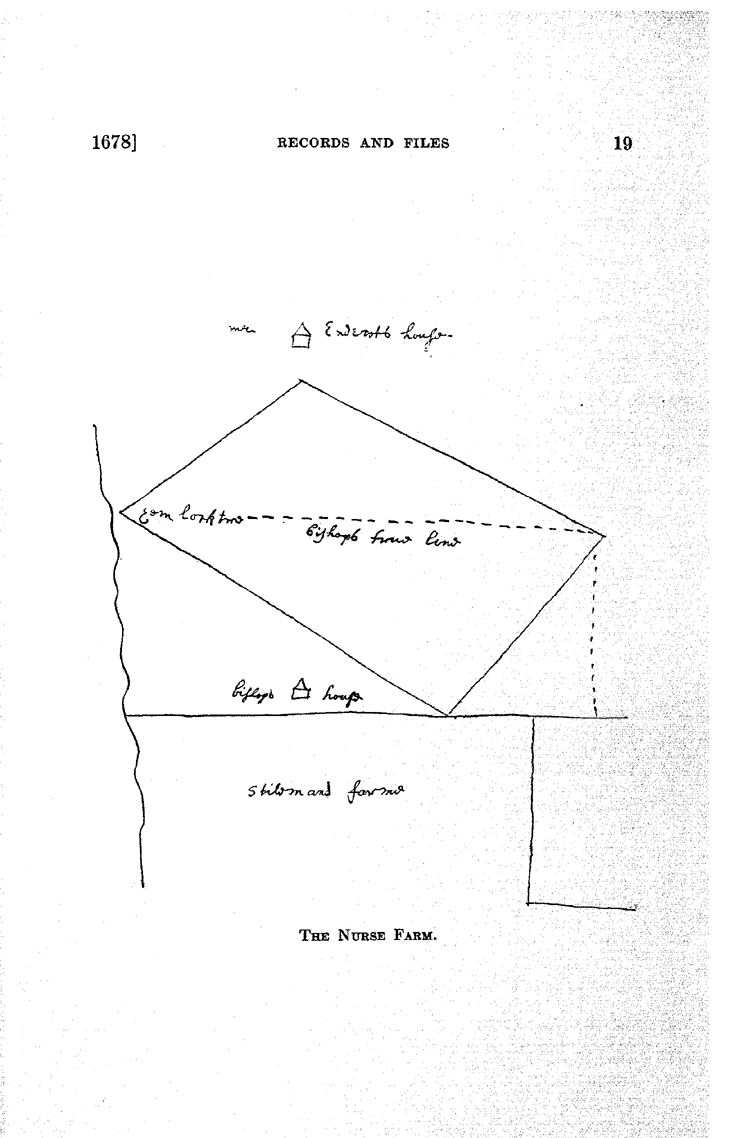 1678] RECORDS AND FILES 19
mr Endecotts house
bishops trew line
bishops house
stilomand farme
THE NURSE FARM.